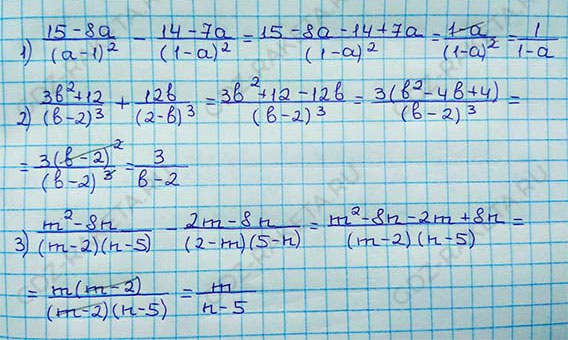 1) (15-8a)/(a-1)² - (14-7a)/(1-a)² = (15-8a-14+7a)/(1-a)² = (1-a)/(1-a)² = 1/(1-a)
2) (3в²+12)/(в-2)³ + (12в)/(2-в)³ = (3в²+12-12в)/(в-2)³ = (3(в²-4в+4))/(в-2)³ =
= (3(в-2)²)/(в-2)³ = 3/(в-2)
3) (m²-8n)/((m-2)(n-5)) - (2m-8n)/((2-m)(5-n)) = (m²-8n-2m+8n)/((m-2)(n-5)) =
= (m(m-2))/((m-2)(n-5)) = m/(n-5)
GDZ-RAKETA.RU